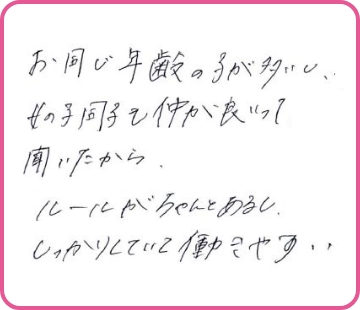 お同じ年齢の子が多いし、
女の子同子も仲が良いって
聞いたから、
ルールがちゃんとあるし、
しっかりしていて働きやす‥